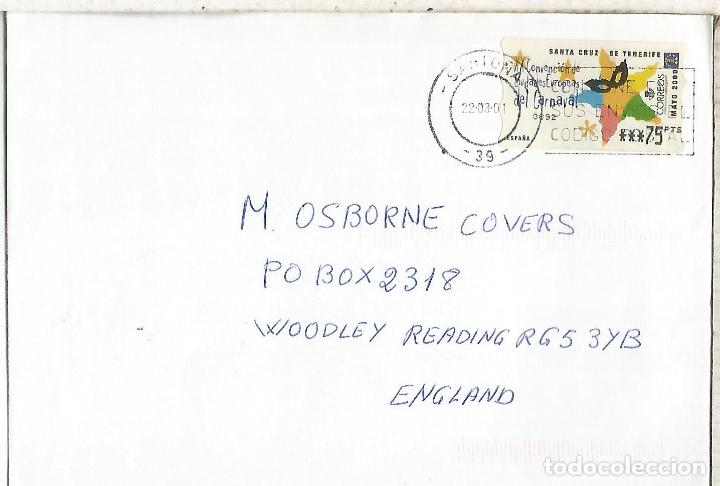 SANTA CRUZ DE TENERIFE
Convención de
Ciudades Europeas
del Carnaval
0892
ESPAÑA
***75 PTS
CORREOS
MAYO 2000
22-03-01
-39-
CODIGO
M. OSBORNE COVERS
PO BOX 2318
WOODLEY READING RG5 3YB
ENGLAND
todocoleccion
todocoleccion.net